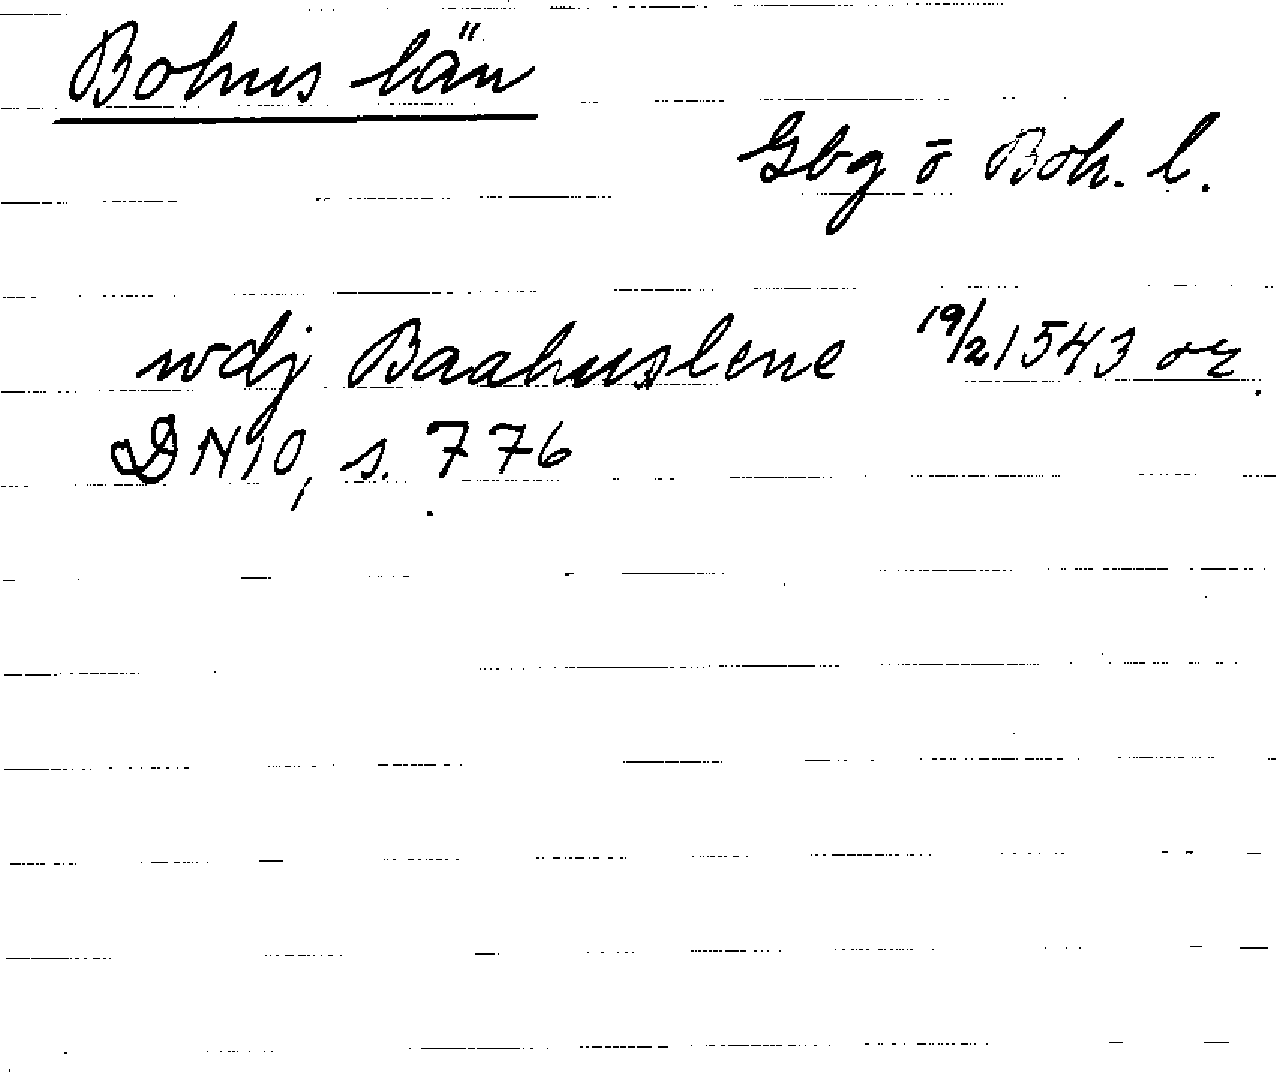 Bohus län
Gbg ō Boh. l.
wdj Baahuslene 19/2 1543 or.
DN 10, s. 776